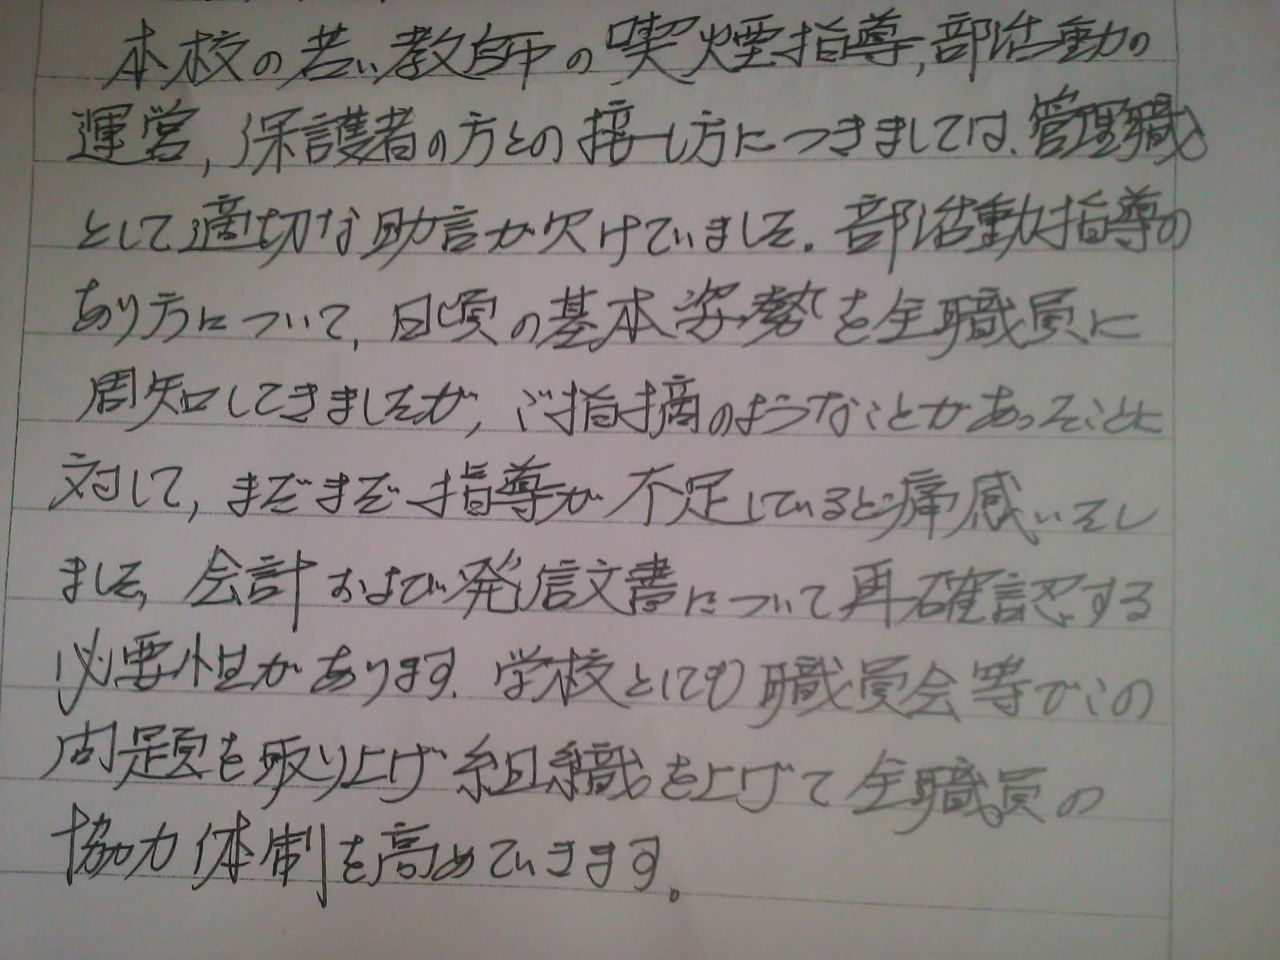 本校の若い教師の喫煙指導,部活動の
運営,保護者の方との接し方につきましては、管理職
として適切な助言が欠けていました。部活動指導の
あり方について,日頃の基本姿勢を全職員に
周知してきましたが,ご指摘のようなことがあったことに
対して,まだまだ指導が不足していると痛感いたし
ました。会計および発信文書について再確認する
必要性があります。学校としても職員会等でこの
問題を取り上げ組織を上げて全職員の
協力体制を高めていきます。